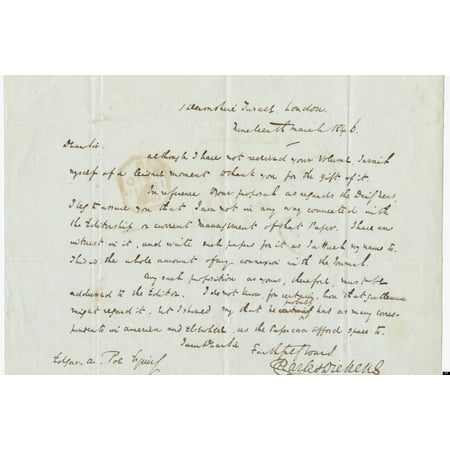 1 Devonshire Terrace London.
Nineteenth March 1846.
Dear Sir
Although I have not received your Volume I avail
myself of a leisure moment to thank you for the gift of it.
In reference to your proposal as regards the Daily News,
I beg to assure you that I am not in any way connected with
the Editorship or current Management of that Paper. I have an
interest in it, and write such papers for it as I attach my name to.
This is the whole amount of my connexion with the Journal.
Any such proposition as yours, therefore, must be
addressed to the Editor. I do not know, for certain, how that gentleman
might regard it, but I should say that he probably has as many corres-
pondents in America and Elsewhere, as the Paper can afford space to.
I am Dear Sir
Faithfully Yours
Edgar. A. Poe Esquire
Charles Dickens